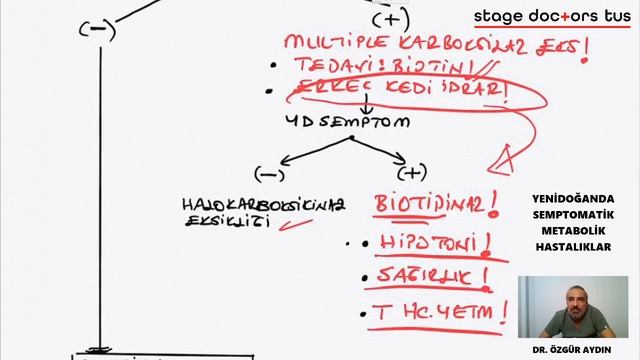 stage doctors tus
(-)
(+)
MULTIPLE KARBOKSİLAZ EKS!
• TEDAVİ: BİOTİN!
• ERKEK KEDİ İDRAR!
YD SEMPTOM
(-)
(+)
HALOKARBOKSİLAZ
EKSİKLİĞİ
BİOTİDİNAZ!
• HİPOTONİ!
• SAĞIRLIK!
• T HC. YETM!
YENİDOĞANDA
SEMPTOMATİK
METABOLİK
HASTALIKLAR
DR. ÖZGÜR AYDIN